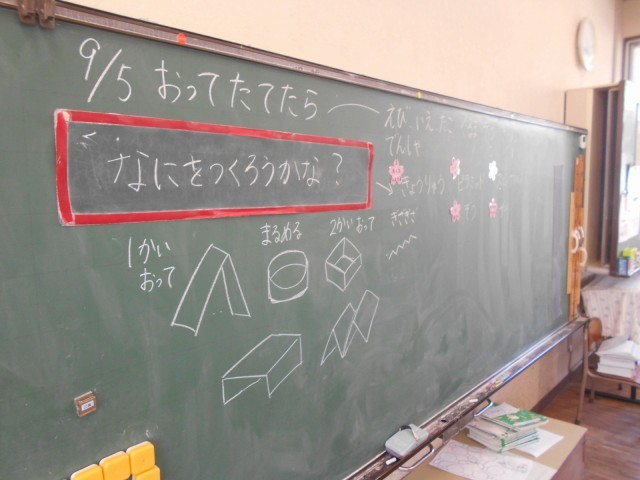 9/5 おってたてたら
なにをつくろうかな？
えび いえ たこ
でんしゃ
きょうりゅう
ぞう
1かい
おって
まるめる
2かいおって
ぎざぎざ